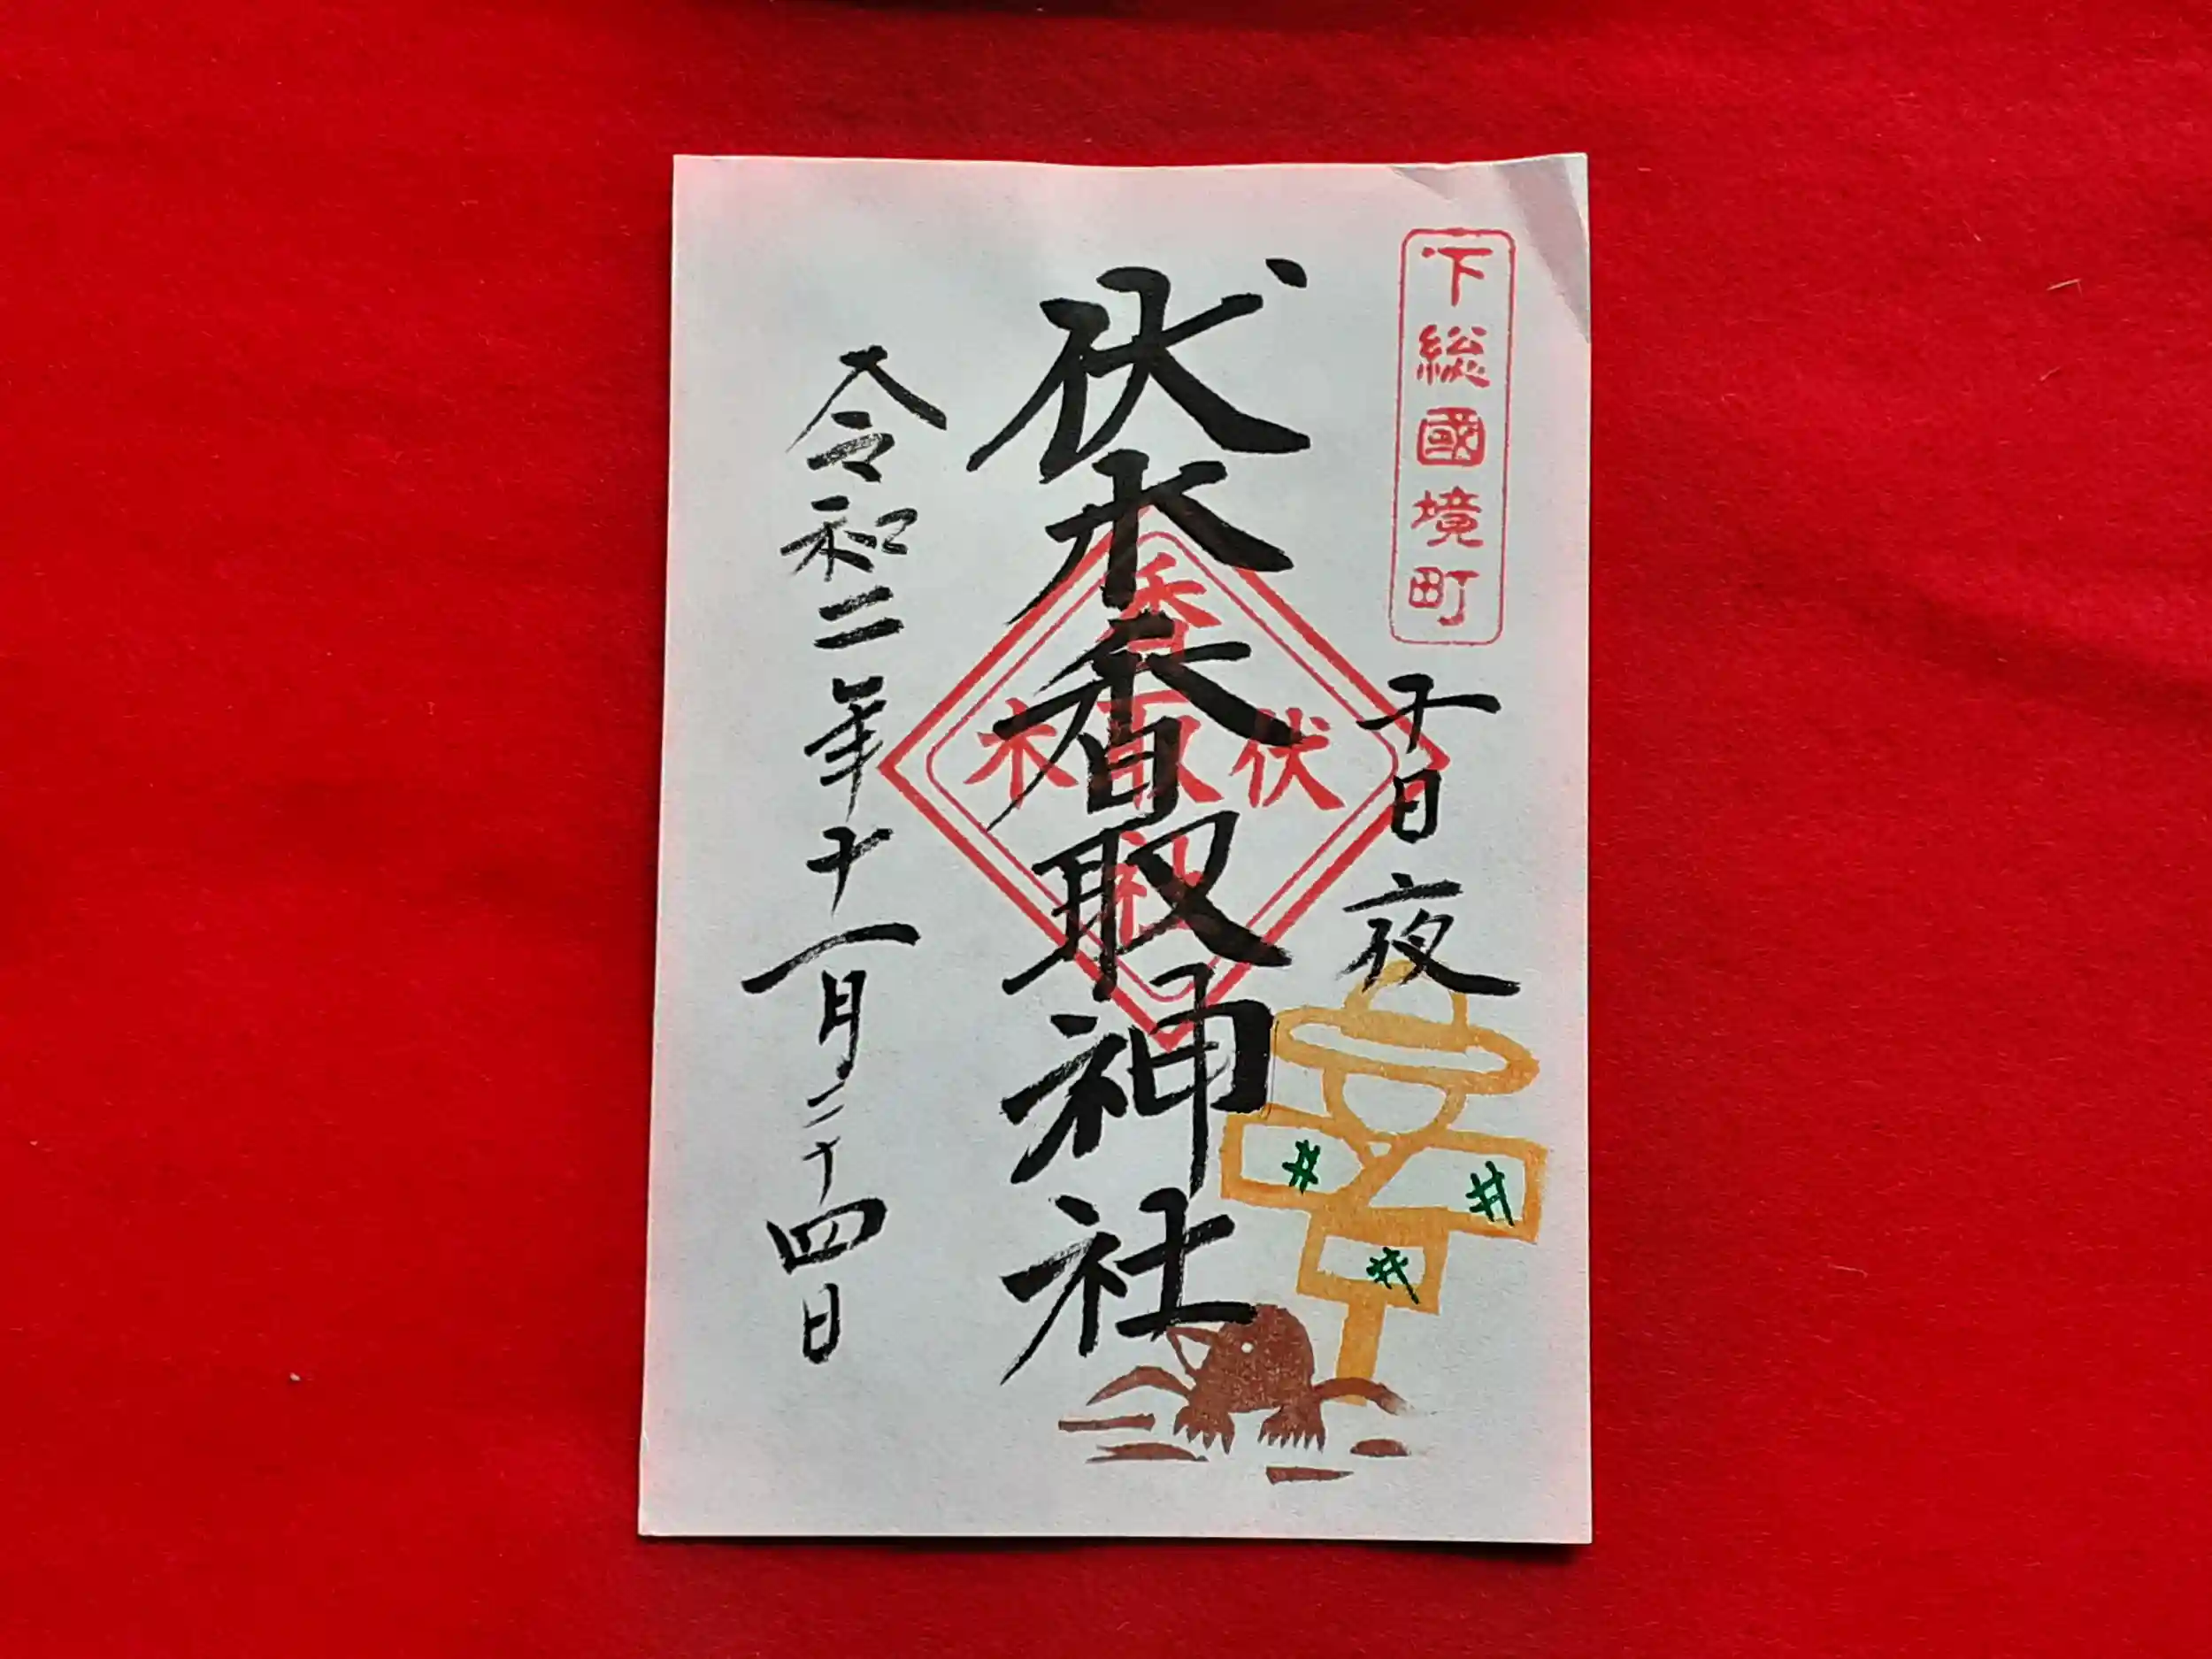 下総國境町
十日夜
伏木香取神社
香取社
伏木
令和二年十一月二十四日
井
井
井